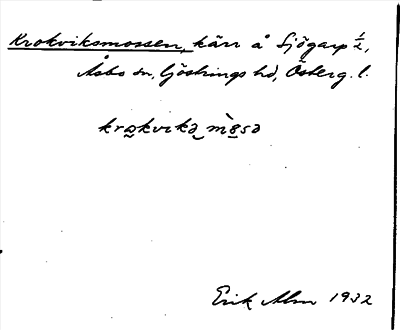 Krokviksmossen, kärr å Sjögarp ½,
Åsbo sn, Göstrings hd, Österg. l.
krokvikə mosə
Erik Alm 1932